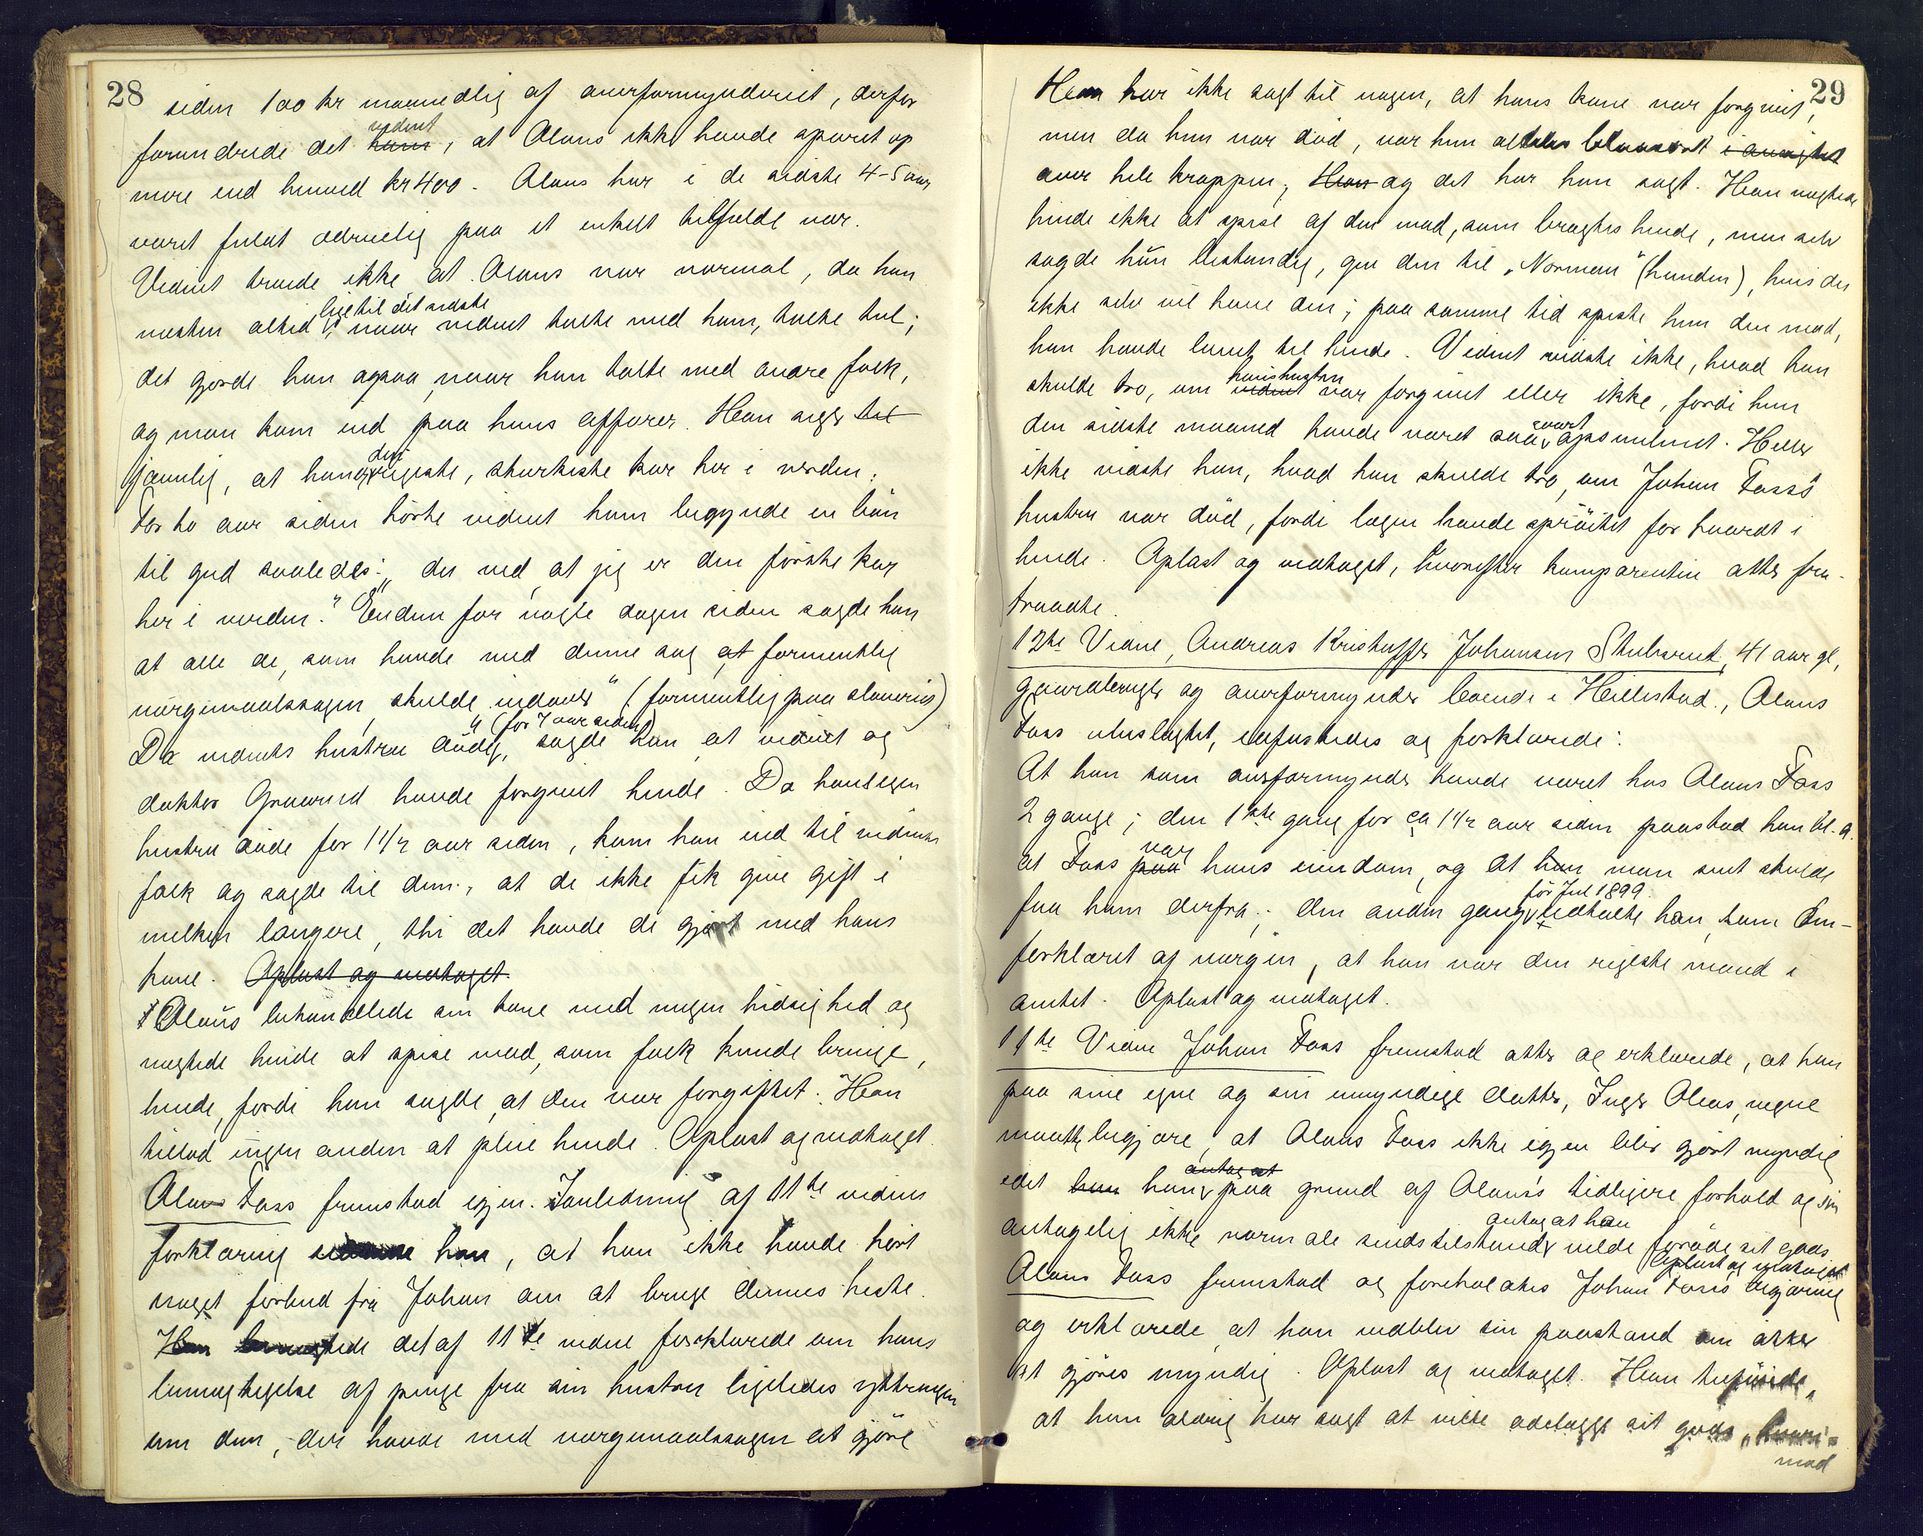 28
siden 100 kr maanedlig af overformynderiet, derfor
vidnet
forundrede det ham, at Olaus ikke havde sparet op
mere end henved kr 400. Olaus har i de sidste 4-5 aar
været fuldt ædruelig paa et enkelt tilfælde nær.
Vidnet troede ikke at Olaus var normal, da han
lige til det sidste
næsten altid, naar vidnet talte med ham, talte tul;
det gjorde han ogsaa, naar han talte med andre folk,
og man kom ind paa hans affærer. Han siger til
den
jævnlig, at han er rigeste, sterkeste kar her i verden.
For to aar siden hørte vidnet ham begynde en bøn
til gud saaledes: „du ved, at jeg er den første kar
her i verden." Endnu for nogle dager siden sagde han
at alle de, som havde med denne sag at formentlig
værgemaalssagen skulde indover" (formentlig paa slaveriet)
(for 7 aar siden)
Da vidnets hustru døde, sagde han at vidnet og
doktor Graarud havde forgivet hende. Da hans egen
hustru døde for 1½ aar siden, kom han ind til vidnets
folk og sagde til dem, at de ikke fik give gift i
melken længere, thi det havde de gjort med hans
kone. Oplæst og vedtaget.
Olaus behandlede sin kone med megen hidsighed og
negtede hende at spise mad, som folk kunde bringe,
hende, fordi han sagde, at den var forgiftet. Han
tillod ingen anden at pleie hende. Oplæst og vedtaget.
Olaus Foss fremstod igjen. I anledning af 11te vidnes
forklaring han, at han ikke havde hørt
noget forbud fra Johan om at bruge dennes heste.
Han det af 11te vidne forklarede om hans
bemægtigelse af penge fra sin hustru ligeledes yttringen
om dem, der havde med værgemaalssagen at gjøre
29
Han har ikke sagt til nogen, at hans kone var forgivet,
men da hun var død, var hun aldeles blaasort i ansigtet
over hele kroppen, Han og det har han sagt. Han negtede
hende ikke at spise af den mad, som bragtes hende, men selv
sagde hun bestandig, gue den til „Norman" (hunden), hvis du
ikke selv vil have den; paa samme tid spiste hun den mad,
han havde lavet til hende. Vidnet vidste ikke, hvad han
hans hustru
skulde tro, om vidnet var forgivet eller ikke, fordi hun
svært
den sidste maaned havde været saa opsvulmet. Heller
ikke vidste han, hvad han skulde tro om Johan Foss's
hustru var død, fordi lægen havde sprøitet for haardt i
hende. Oplæst og vedtaget, hvorefter komparenten atter fra-
traadte.
12te Vidne, Andreas Kristoffer Johansen Stubsrud, 41 aar gl,
gaardbruger og overformynder boende i Hillestad., Olaus
Foss ubeslægtet, edfæstedes og forklarede:
At han som overformynder havde været hos Olaus Foss
2 gange; den 1ste gang for ca 1½ aar siden paastod han bl. a.
var
at Foss paa hans eiendom, og at han man sent skulde
før Jul 1899
faa ham derfra; den anden gang vedholdt han, som om-
forklaret af værgen, at han var den rigeste mand i
amtet. Oplæst og vedtaget.
11te Vidne Johan Foss fremstod atter og erklærede, at han
paa sine egne og sin umyndige datter, Inger Oleas, vegne
maatte begjære, at Olaus Foss ikke igjen blir gjort myndig
antog at
idet han han paa grund af Olaus's tidligere forhold og sin
antog at han
antagelig ikke normale sindstilstand vilde forøde sit gods.
Oplæst og vedtaget
Olaus Foss fremstod og foreholdtes Johan Foss's begjæring
og erklærede, at han vedblev sin paastand om atter
at gjøres myndig. Oplæst og vedtaget. Han tilføiede,
at han aldrig har sagt at ville ødelægge sit gods,
mod